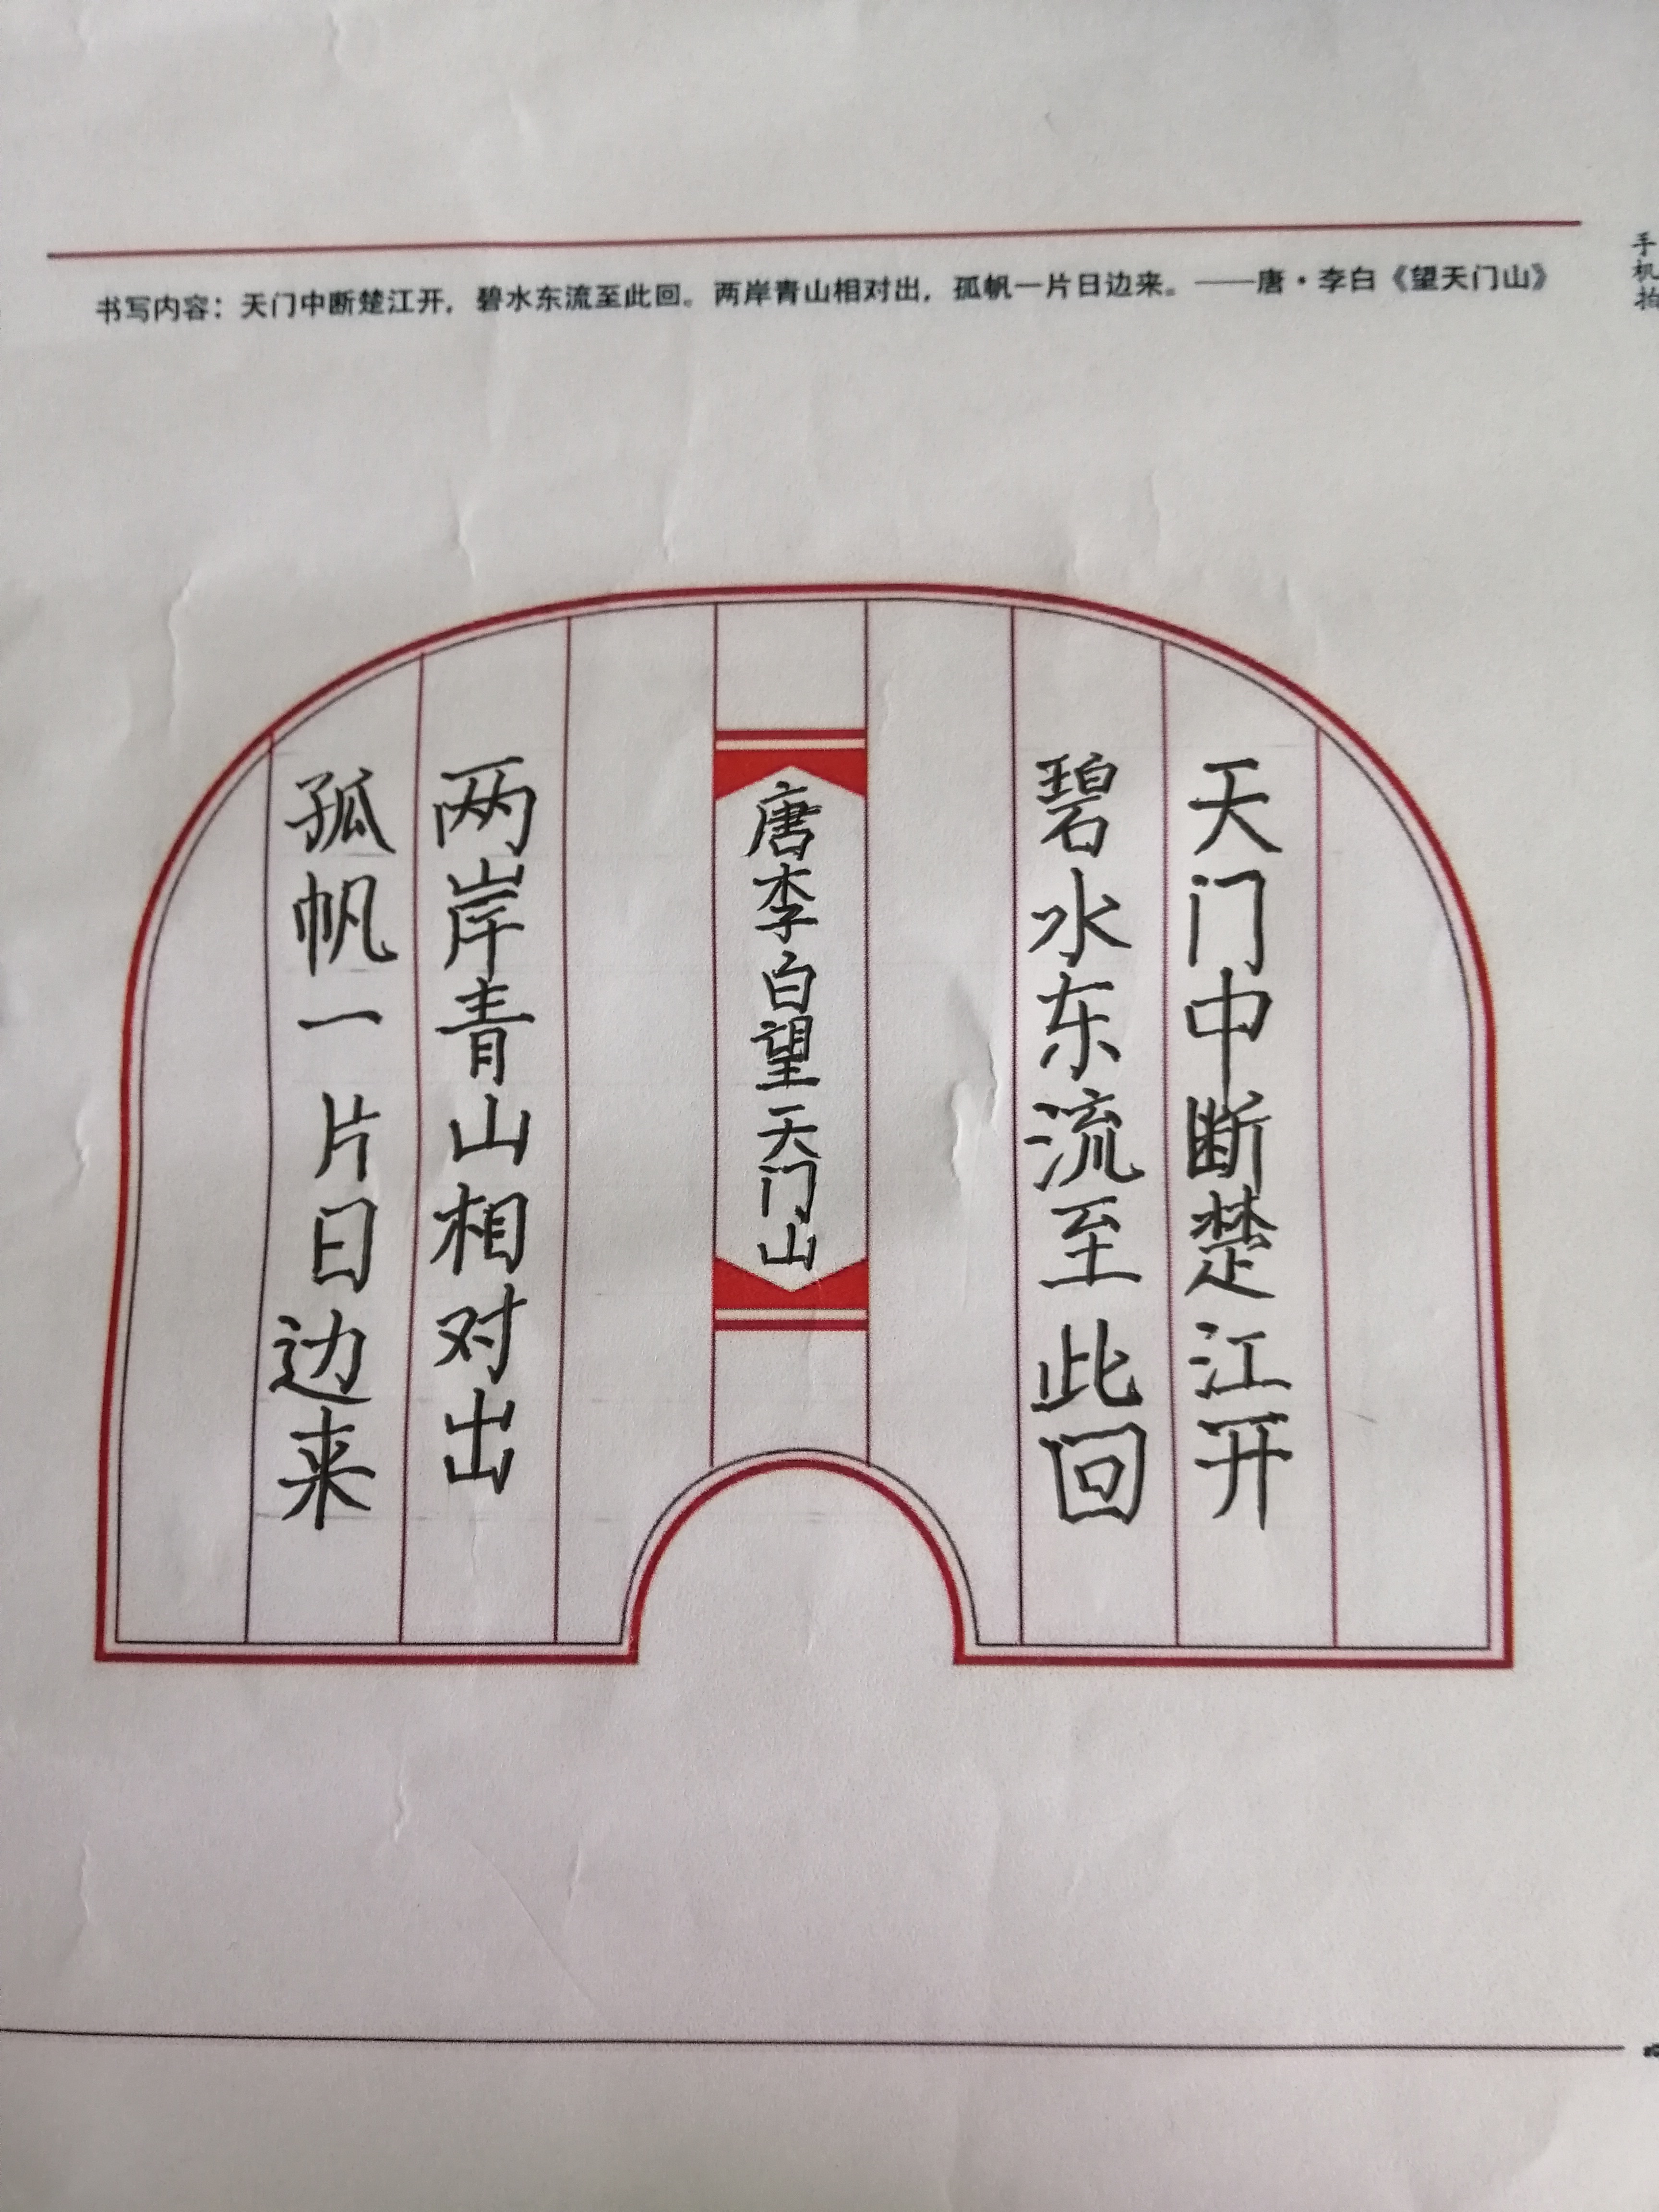 书写内容：天门中断楚江开，碧水东流至此回。两岸青山相对出，孤帆一片日边来。——唐·李白《望天门山》
手机拍
天门中断楚江开
碧水东流至此回
唐李白望天门山
两岸青山相对出
孤帆一片日边来